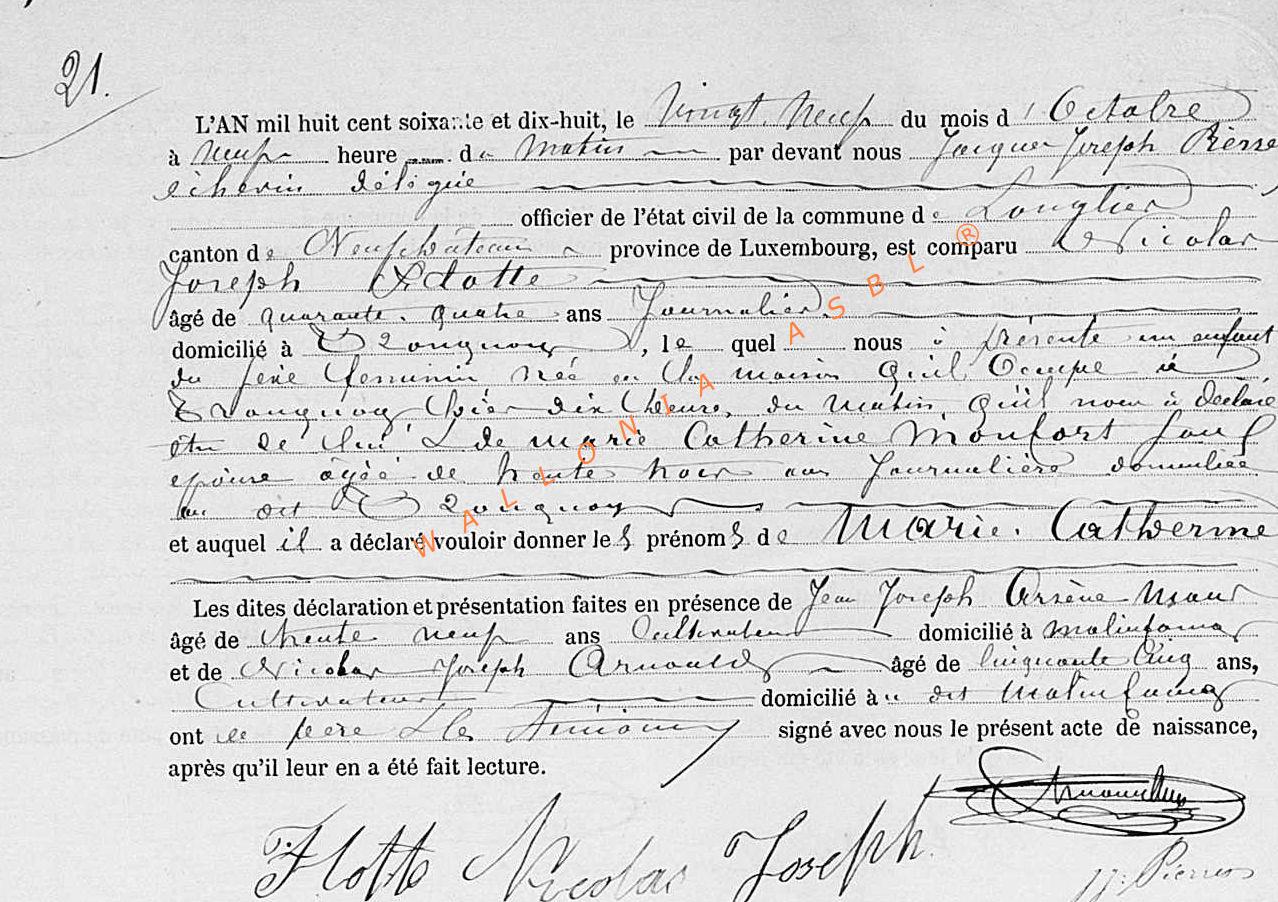 21.
L'AN mil huit cent soixante et dix-huit, le Vingt Neuf du mois d' Octobre
à Neuf heure du Matin par devant nous Jacques Joseph Pierre
échevin délégué
officier de l'état civil de la commune de Longlier
canton de Neufchâteau province de Luxembourg, est comparu Nicolas
Joseph Flotte
âgé de quarante quatre ans Journalier
domicilié à Tronquoy, le quel nous a présenté un enfant
du sexe feminin, née en la maison qu'il occupe à
Tronquoy hier dix heure, du matin, qu'il nous a déclaré
être de lui & de marie Catherine Monfort son
épouse agée de trente ans Journalière domiciliée
au dit Tronquoy
et auquel il a déclaré vouloir donner les prénoms de Marie Catherine
Les dites déclaration et présentation faites en présence de Jean Joseph Arsène
âgé de trente neuf ans Cultivateur domicilié à malinfaing
et de Nicolas Joseph Arnould âgé de Cinquante Cinq ans,
Cultivateur domicilié à dit Malinfaing
ont le père & les témoins signé avec nous le présent acte de naissance,
après qu'il leur en a été fait lecture.
Flotte Nicolas Joseph.
WALLONIA ASBL ®